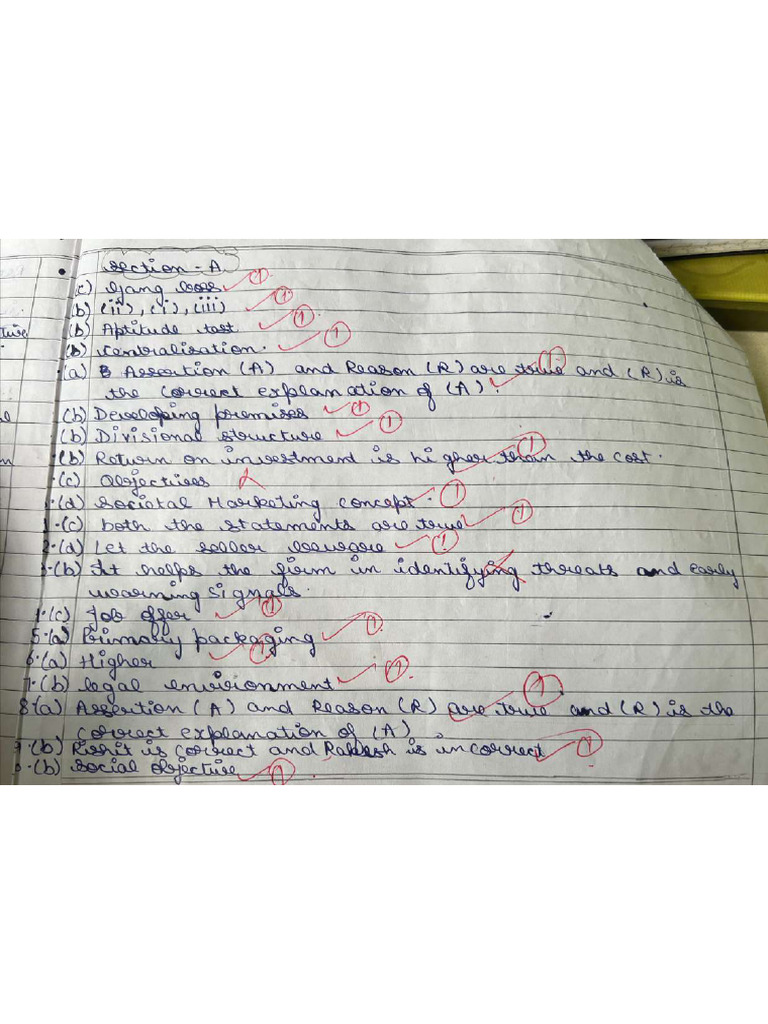 Section - A
c) Gang boss ①
(b) (ii), (i), (iii) ①
(b) Aptitude test ①
(b) Centralisation. ①
(a) Assertion (A) and Reason (R) are true and (R) is ①
the correct explanation of (A).
(b) Developing premises ①
(b) Divisional structure ①
(b) Return on investment is higher than the cost. ①
(c) Objectives
(d) Societal Marketing concept. ①
1.(c) both the statements are true ①
2.(d) Let the seller beware ①
3.(b) It helps the firm in identifying threats and early
warning signals.
4.(c) Job offer ①
5.(a) Primary packaging ①
6.(a) Higher ①
7.(b) legal environment ①
8(a) Assertion (A) and Reason (R) are true and (R) is the ①
correct explanation of (A)
9.(b) Rishit is correct and Rakesh is incorrect ①
0.(b) Social objective ①